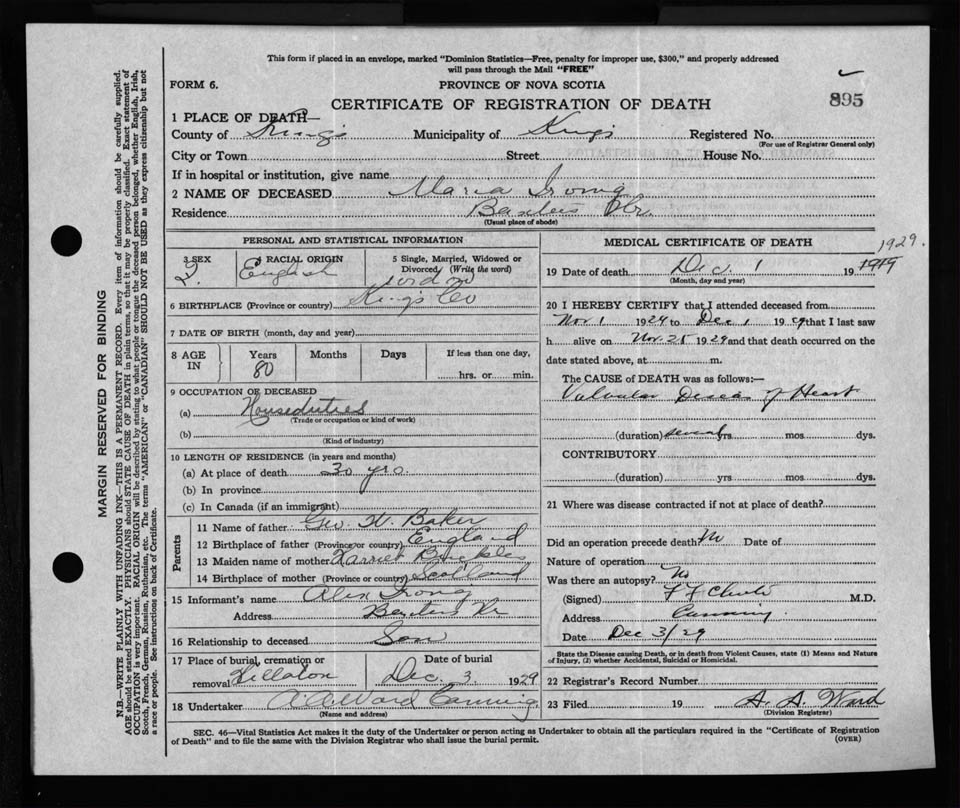 This form if placed in an envelope, marked "Dominion Statistics—Free, penalty for improper use, $300," and properly addressed
will pass through the Mail "FREE"
FORM 6. PROVINCE OF NOVA SCOTIA
CERTIFICATE OF REGISTRATION OF DEATH 895
1 PLACE OF DEATH—
County of Kings Municipality of Kings Registered No.
(For use of Registrar General only)
City or Town Street House No.
If in hospital or institution, give name
2 NAME OF DECEASED Maria Irong
Residence Baxters Hr.
(Usual place of abode)
PERSONAL AND STATISTICAL INFORMATION
3 SEX 4 RACIAL ORIGIN 5 Single, Married, Widowed or
Divorced (Write the word)
English
6 BIRTHPLACE (Province or country) Kings Co
7 DATE OF BIRTH (month, day and year)
8 AGE IN Years Months Days If less than one day,
80 hrs. or min.
9 OCCUPATION OF DECEASED
(a) Houseduties
(Trade or occupation or kind of work)
(b)
(Kind of industry)
10 LENGTH OF RESIDENCE (in years and months)
(a) At place of death 30 yrs.
(b) In province
(c) In Canada (if an immigrant)
Parents
11 Name of father Geo. W. Baker
12 Birthplace of father (Province or country) England
13 Maiden name of mother Harriet
14 Birthplace of mother (Province or country) Scotland
15 Informant's name Alex Irong
Address Baxters Hr
16 Relationship to deceased Son
17 Place of burial, cremation or Date of burial
removal Hillaton Dec. 3 1929
18 Undertaker A.A. Ward Canning
(Name and address)
MEDICAL CERTIFICATE OF DEATH
1929.
19 Date of death Dec. 1 19
(Month, day and year)
20 I HEREBY CERTIFY that I attended deceased from
Nov 1 1929 to Dec 1 1929 that I last saw
h alive on Nov 25 1929 and that death occurred on the
date stated above, at m.
The CAUSE of DEATH was as follows:—
Valvular Disease of Heart
(duration) several yrs mos dys.
CONTRIBUTORY
(duration) yrs mos dys.
21 Where was disease contracted if not at place of death?
Did an operation precede death? No Date of
Nature of operation
Was there an autopsy? No
(Signed) F F Chute M.D.
Address Canning.
Date Dec 3/29
State the Disease causing Death, or in death from Violent Causes, state (1) Means and Nature
of Injury, (2) whether Accidental, Suicidal or Homicidal.
22 Registrar's Record Number
23 Filed 19 A. A. Ward
(Division Registrar)
SEC. 46—Vital Statistics Act makes it the duty of the Undertaker or person acting as Undertaker to obtain all the particulars required in the "Certificate of Registration
of Death" and to file the same with the Division Registrar who shall issue the burial permit. (OVER)
MARGIN RESERVED FOR BINDING
N.B.—WRITE PLAINLY WITH UNFADING INK—THIS IS A PERMANENT RECORD. Every item of information should be carefully supplied.
AGE should be stated EXACTLY. PHYSICIANS should STATE CAUSE OF DEATH in plain terms, so that it may be properly classified. Exact statement of
OCCUPATION is very important. RACIAL ORIGIN will be described by stating to what people or tongue the deceased person belonged, whether English, Irish,
Scotch, French, German, Russian, Ruthenian, etc. The terms "AMERICAN" or "CANADIAN" SHOULD NOT BE USED as they express citizenship but not
a race or people. See instructions on back of Certificate.